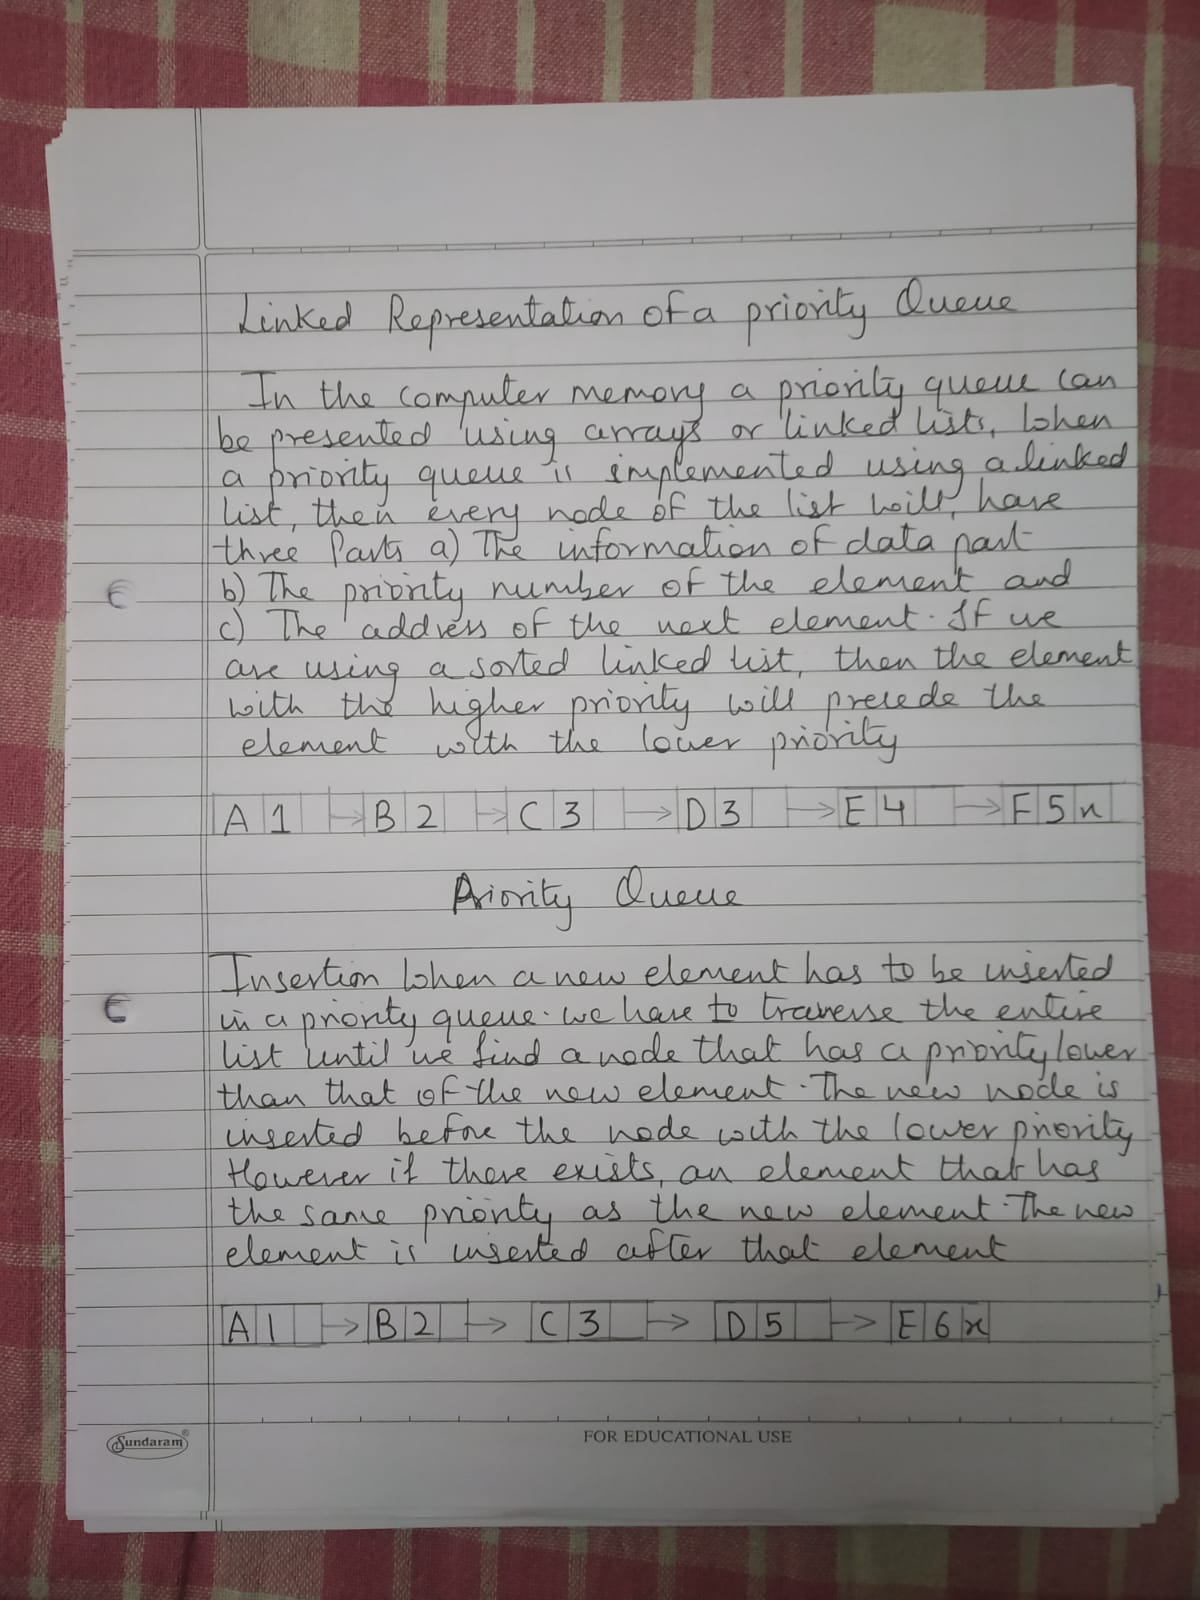 Linked Representation of a priority Queue
In the computer memory a priority queue can
be presented using arrays or linked lists, when
a priority queue is implemented using a linked
list, then every node of the list will, have
three Parts a) The information of data part
b) The priority number of the element and
c) The address of the next element. If we
are using a sorted linked list, then the element
with the higher priority will precede the
element with the lower priority
A 1 → B 2 → C 3 → D 3 → E 4 → F 5 x
Priority Queue
Insertion When a new element has to be inserted
in a priority queue. we have to traverse the entire
list until we find a node that has a priority lower
than that of the new element. The new node is
inserted before the node with the lower priority
However if there exists, an element that has
the same priority as the new element. The new
element is inserted after that element
A 1 → B 2 → C 3 → D 5 → E 6 x
Sundaram®
FOR EDUCATIONAL USE